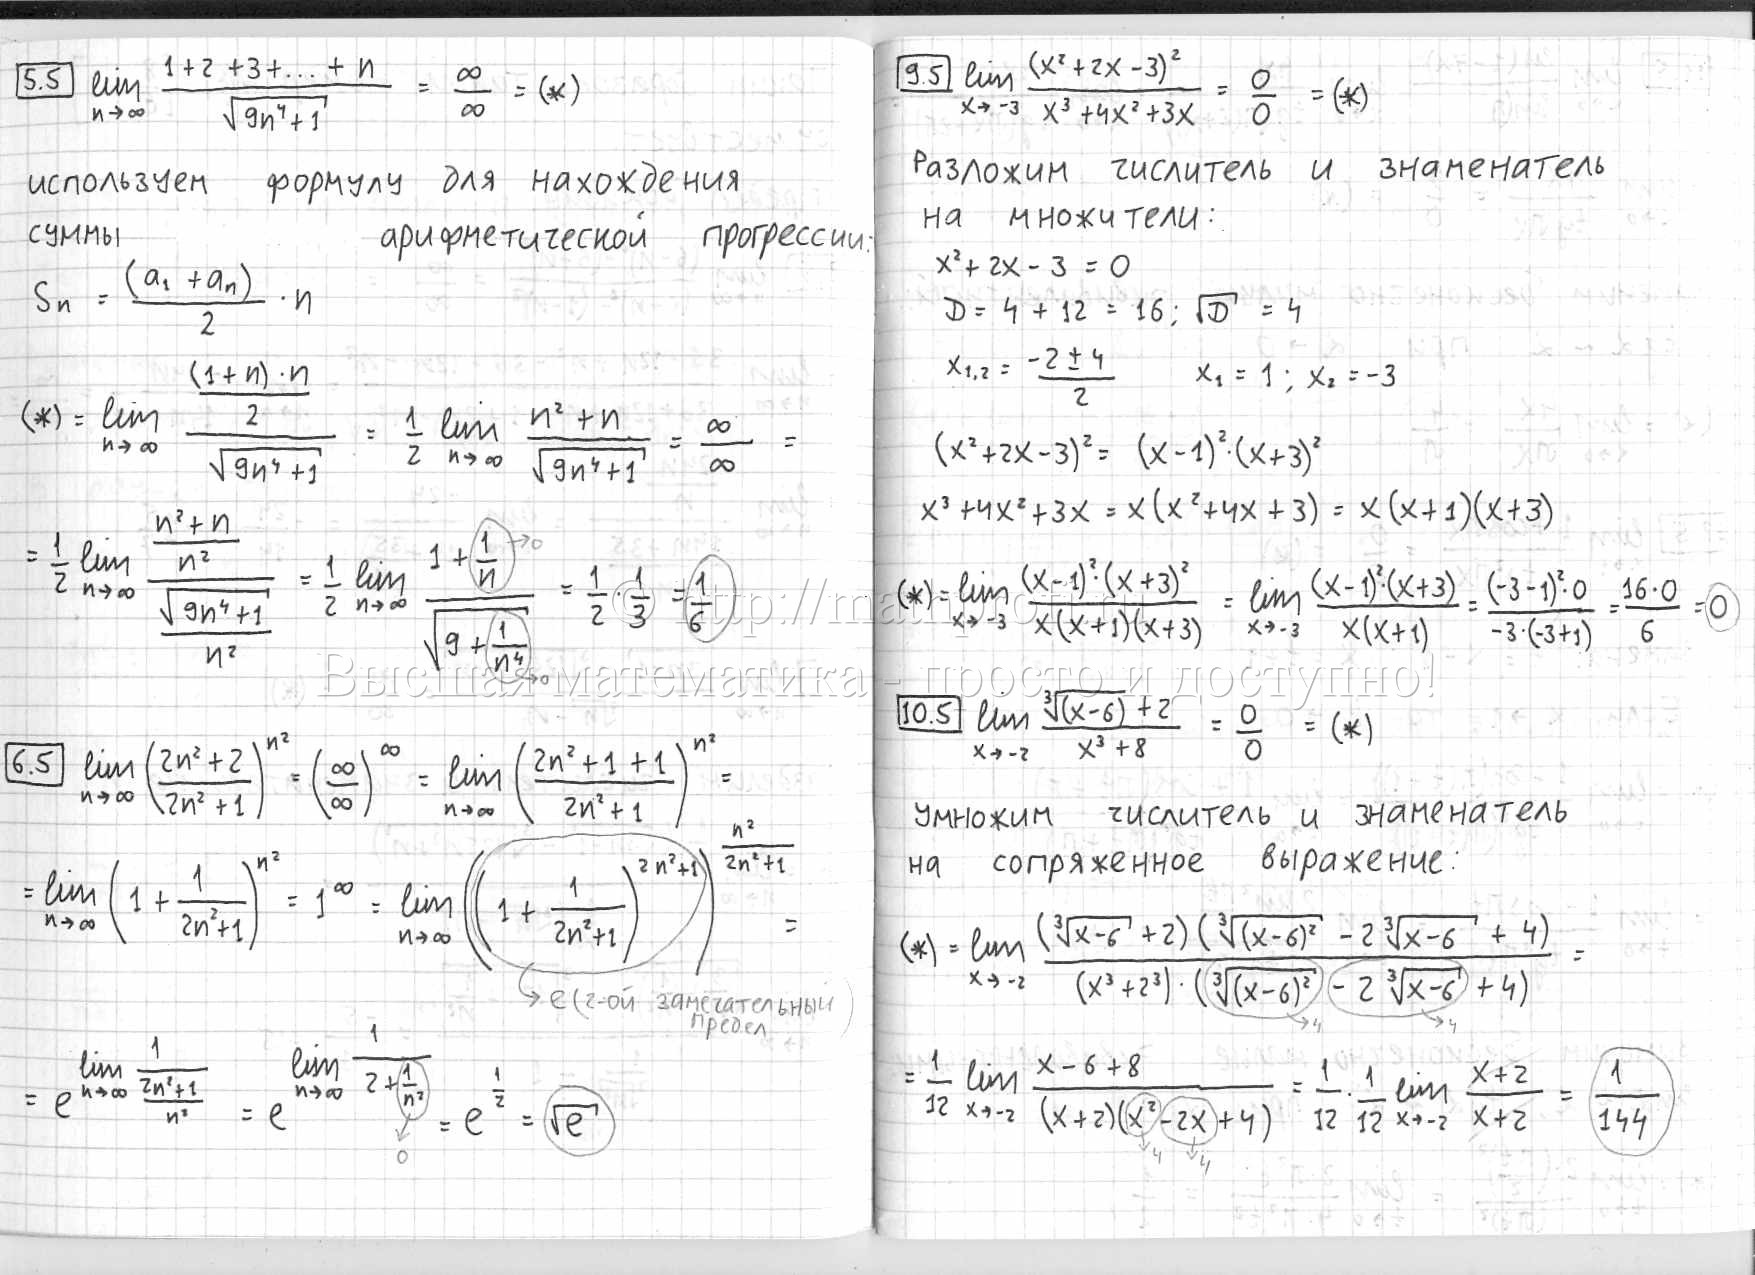 5.5 lim n→∞ (1+2+3+...+n)/√(9n⁴+1) = ∞/∞ = (*)
используем формулу для нахождения
суммы арифметической прогрессии:
Sn = (a₁ + aₙ)/2 · n
(*) = lim n→∞ ((1+n)·n/2)/√(9n⁴+1) = 1/2 lim n→∞ (n²+n)/√(9n⁴+1) = ∞/∞ =
= 1/2 lim n→∞ ((n²+n)/n²)/(√(9n⁴+1)/n²) = 1/2 lim n→∞ (1+1/n →0)/√(9+1/n⁴ →0) = 1/2 · 1/3 = 1/6
6.5 lim n→∞ ((2n²+2)/(2n²+1))^n² = (∞/∞)^∞ = lim n→∞ ((2n²+1+1)/(2n²+1))^n² =
= lim n→∞ (1+1/(2n²+1))^n² = 1^∞ = lim n→∞ ((1+1/(2n²+1))^(2n²+1))^(n²/(2n²+1)) =
→ e (2-ой замечательный
предел)
= e^(lim n→∞ 1/((2n²+1)/n²)) = e^(lim n→∞ 1/(2+1/n²)) = e^(1/2) = √e
0
9.5 lim x→-3 (x²+2x-3)²/(x³+4x²+3x) = 0/0 = (*)
Разложим числитель и знаменатель
на множители:
x²+2x-3 = 0
D = 4 + 12 = 16; √D = 4
x₁,₂ = (-2±4)/2 x₁ = 1; x₂ = -3
(x²+2x-3)² = (x-1)²·(x+3)²
x³+4x²+3x = x(x²+4x+3) = x(x+1)(x+3)
(*) = lim x→-3 (x-1)²·(x+3)²/(x(x+1)(x+3)) = lim x→-3 (x-1)²·(x+3)/(x(x+1)) = (-3-1)²·0/(-3·(-3+1)) = 16·0/6 = 0
10.5 lim x→-2 (∛(x-6)+2)/(x³+8) = 0/0 = (*)
Умножим числитель и знаменатель
на сопряженное выражение:
(*) = lim x→-2 (∛(x-6)+2)(∛(x-6)²-2∛(x-6)+4)/((x³+2³)·(∛(x-6)²-2∛(x-6)+4)) =
→4 →4
= 1/12 lim x→-2 (x-6+8)/((x+2)(x²-2x+4)) = 1/12 · 1/12 lim x→-2 (x+2)/(x+2) = 1/144
→4 →4
© http://mathprofi.ru
Высшая математика - просто и доступно!